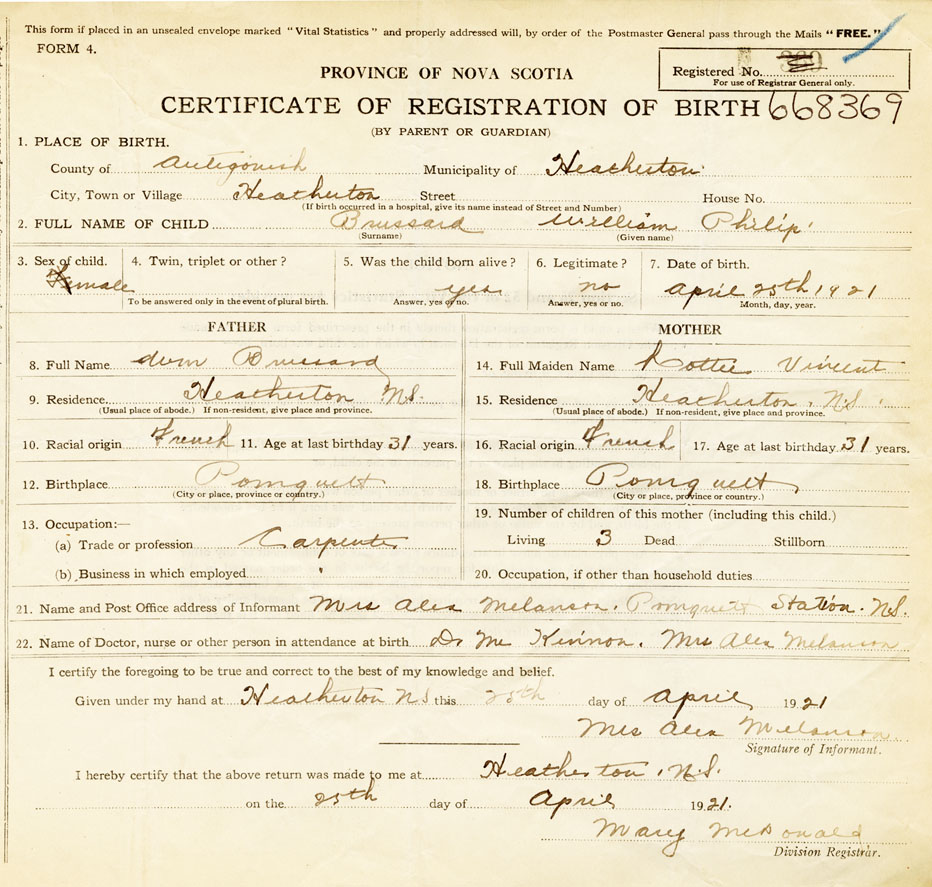 This form if placed in an unsealed envelope marked "Vital Statistics" and properly addressed will, by order of the Postmaster General pass through the Mails "FREE."
FORM 4.
Registered No.
For use of Registrar General only.
PROVINCE OF NOVA SCOTIA
CERTIFICATE OF REGISTRATION OF BIRTH 668369
(BY PARENT OR GUARDIAN)
1. PLACE OF BIRTH.
County of Antigonish Municipality of Heatherton
City, Town or Village Heatherton Street House No.
(If birth occurred in a hospital, give its name instead of Street and Number)
2. FULL NAME OF CHILD Brussard William Philip
(Surname) (Given name)
3. Sex of child. 4. Twin, triplet or other? 5. Was the child born alive? 6. Legitimate? 7. Date of birth.
male yes no April 25th 1921
To be answered only in the event of plural birth. Answer, yes or no. Answer, yes or no. Month, day, year.
FATHER MOTHER
8. Full Name Brussard 14. Full Maiden Name Lottie Vincent
9. Residence. Heatherton N.S. 15. Residence Heatherton. N.S.
(Usual place of abode.) If non-resident, give place and province. (Usual place of abode.) If non-resident, give place and province.
10. Racial origin French 11. Age at last birthday 31 years. 16. Racial origin French 17. Age at last birthday 31 years.
12. Birthplace Pomquett 18. Birthplace Pomquett
(City or place, province or country.) (City or place, province or country.)
13. Occupation:— 19. Number of children of this mother (including this child.)
(a) Trade or profession Carpenter Living 3 Dead Stillborn
(b) Business in which employed 20. Occupation, if other than household duties
21. Name and Post Office address of Informant Mrs Alex Melanson. Pomquett Station. N.S.
22. Name of Doctor, nurse or other person in attendance at birth Dr Mc Kinnon. Mrs Alex Melanson
I certify the foregoing to be true and correct to the best of my knowledge and belief.
Given under my hand at Heatherton N.S this 25th day of April 1921
Mrs Alex Melanson
Signature of Informant.
I hereby certify that the above return was made to me at Heatherton. N.S.
on the 25th day of April 1921.
Mary McDonald
Division Registrar.